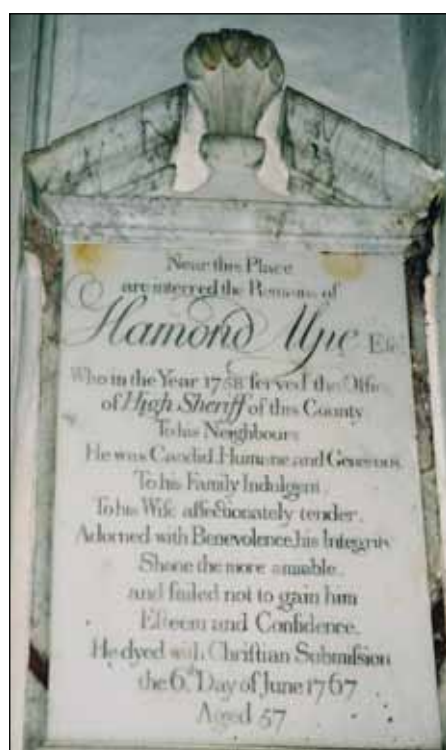 Near this Place
are interred the Remains of
Hamond Alpe Esq.
Who in the Year 1758 ſerved the Office
of High Sheriff of this County
To his Neighbours
He was Candid, Humane, and Generous.
To his Family Indulgent.
To his Wife affectionately tender.
Adorned with Benevolence, his Integrity
Shone the more amiable,
and failed not to gain him
Eſteem and Confidence.
He dyed with Chriſtian Submiſsion
the 6.th Day of June 1767
Aged 57